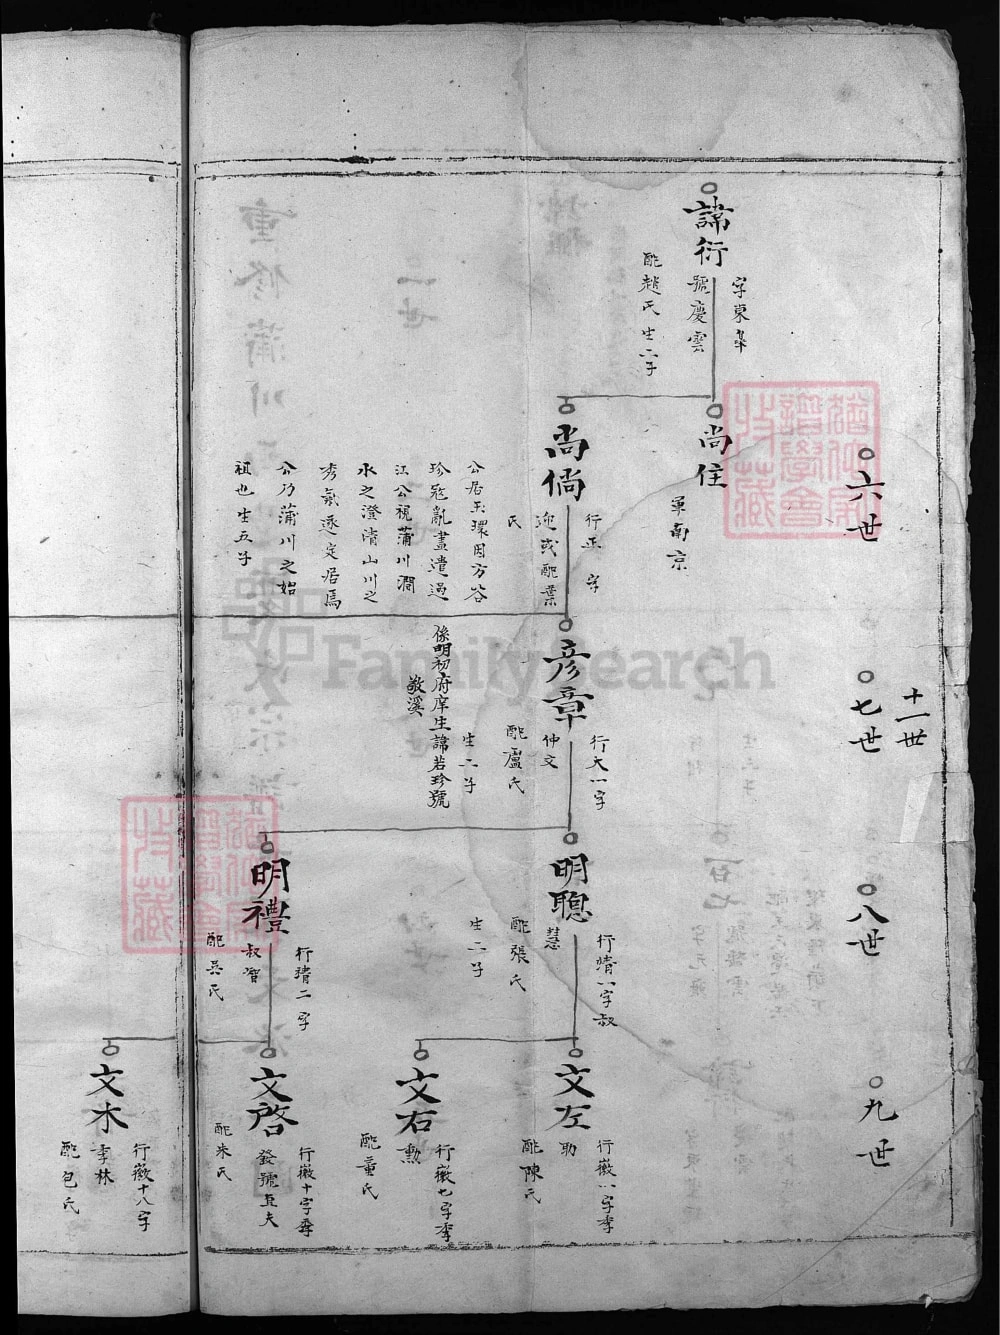 諱衍
字東皋
號慶雲
配趙氏生二子
六世
尚住
軍南京
尚倘
行正 字
迎或配葉
氏
公居玉環因方谷
珍寇亂盡遣過
江公視蒲川澗
水之澄清山川之
秀氣遂定居焉
公乃蒲川之始
祖也生五子
十一世
七世
彦章
行大一字
仲文
配盧氏
生二子
係明初府庠生諱若珍號
敬溪
八世
明聰
行靖一字叔
慧
配張氏
生二子
明禮
行靖二字
叔智
配吳氏
九世
文左
行徽一字季
助
配陳氏
文右
行徽七字季
勲
配董氏
文啓
行徽十字
發號直夫
配朱氏
文木
行徽十八字
季林
配包氏
FamilySearch